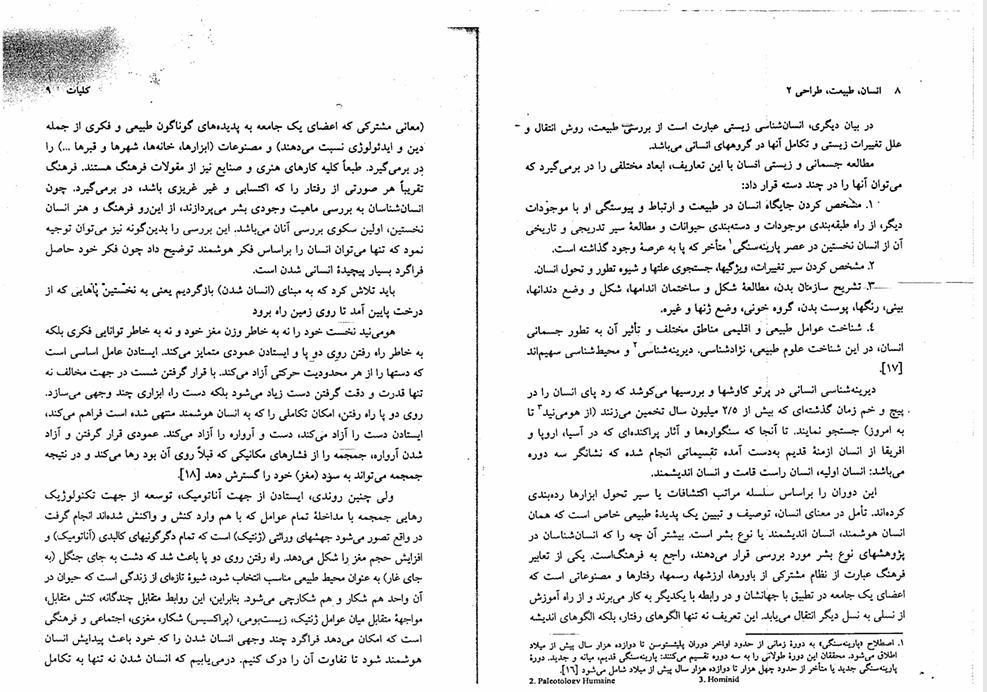 ۸ انسان، طبیعت، طراحی ۲
در بیان دیگری، انسان‌شناسی زیستی عبارت است از بررسی طبیعت، روش انتقال و
علل تغییرات زیستی و تکامل آنها در گروههای انسانی می‌باشد.
مطالعه جسمانی و زیستی انسان با این تعاریف، ابعاد مختلفی را در برمی‌گیرد که
می‌توان آنها را در چند دسته قرار داد:
۱. مشخص کردن جایگاه انسان در طبیعت و ارتباط و پیوستگی او با موجودات
دیگر، از راه طبقه‌بندی موجودات و دسته‌بندی حیوانات و مطالعهٔ سیر تدریجی و تاریخی
آن از انسان نخستین در عصر پارینه‌سنگی۱ متأخر که پا به عرصهٔ وجود گذاشته است.
۲. مشخص کردن سیر تغییرات، ویژگیها، جستجوی علتها و شیوه تطور و تحول انسان.
۳. تشریح سازمان بدن، مطالعهٔ شکل و ساختمان اندامها، شکل و وضع دندانها،
بینی، رنگها، پوست بدن، گروه خونی، وضع ژنها و غیره.
۴. شناخت عوامل طبیعی و اقلیمی مناطق مختلف و تأثیر آن به تطور جسمانی
انسان، در این شناخت علوم طبیعی، نژادشناسی. دیرینه‌شناسی۲ و محیط‌شناسی سهیم‌اند
[۱۷].
دیرینه‌شناسی انسانی در پرتو کاوشها و بررسیها می‌کوشد که رد پای انسان را در
پیچ و خم زمان گذشته‌ای که بیش از ۲/۵ میلیون سال تخمین می‌زنند (از هومی‌نید۳ تا
به امروز) جستجو نمایند. تا آنجا که سنگواره‌ها و آثار پراکنده‌ای که در آسیا، اروپا و
افریقا از انسان ازمنهٔ قدیم به‌دست آمده تقسیماتی انجام شده که نشانگر سه دوره
می‌باشد: انسان اولیه، انسان راست قامت و انسان اندیشمند.
این دوران را براساس سلسله مراتب اکتشافات یا سیر تحول ابزارها رده‌بندی
کرده‌اند. تأمل در معنای انسان، توصیف و تبیین یک پدیدهٔ طبیعی خاص است که همان
انسان هوشمند، انسان اندیشمند یا نوع بشر است. بیشتر آن چه را که انسان‌شناسان در
پژوهشهای نوع بشر مورد بررسی قرار می‌دهند، راجع به فرهنگ‌است. یکی از تعابیر
فرهنگ عبارت از نظام مشترکی از باورها، ارزشها، رسمها، رفتارها و مصنوعاتی است که
اعضای یک جامعه در تطبیق با جهانشان و در رابطه با یکدیگر به کار می‌برند و از راه آموزش
از نسلی به نسل دیگر انتقال می‌یابد. این تعریف نه تنها الگوهای رفتار، بلکه الگوهای اندیشه
۱. اصطلاح «پارینه‌سنگی» به دورهٔ زمانی از حدود اواخر دوران پلیئستوسن تا دوازده هزار سال پیش از میلاد
اطلاق می‌شود. محققان این دورهٔ طولانی را به سه دوره تقسیم می‌کنند: پارینه‌سنگی قدیم، میانه و جدید. دورهٔ
پارینه‌سنگی جدید یا متأخر از حدود چهل هزار تا دوازده هزار سال پیش از میلاد شامل می‌شود [۱۶].
2. Paleotology Humaine 3. Hominid
کلیات ۹
(معانی مشترکی که اعضای یک جامعه به پدیده‌های گوناگون طبیعی و فکری از جمله
دین و ایدئولوژی نسبت می‌دهند) و مصنوعات (ابزارها، خانه‌ها، شهرها و قبرها ...) را
در برمی‌گیرد. طبعاً کلیه کارهای هنری و صنایع نیز از مقولات فرهنگ هستند. فرهنگ
تقریباً هر صورتی از رفتار را که اکتسابی و غیر غریزی باشد، در برمی‌گیرد. چون
انسان‌شناسان به بررسی ماهیت وجودی بشر می‌پردازند، از این‌رو فرهنگ و هنر انسان
نخستین، اولین سکوی بررسی آنان می‌باشد. این بررسی را بدین‌گونه نیز می‌توان توجیه
نمود که تنها می‌توان انسان را براساس فکر هوشمند توضیح داد چون فکر خود حاصل
فراگرد بسیار پیچیدهٔ انسانی شدن است.
باید تلاش کرد که به مبنای (انسان شدن) بازگردیم یعنی به نخستین پاهایی که از
درخت پایین آمد تا روی زمین راه برود
هومی‌نید نخست خود را نه به خاطر وزن مغز خود و نه به خاطر توانایی فکری بلکه
به خاطر راه رفتن روی دو پا و ایستادن عمودی متمایز می‌کند. ایستادن عامل اساسی است
که دستها را از هر محدودیت حرکتی آزاد می‌کند. با قرار گرفتن شست در جهت مخالف نه
تنها قدرت و دقت گرفتن دست زیاد می‌شود بلکه دست را، ابزاری چند وجهی می‌سازد.
روی دو پا راه رفتن، امکان تکاملی را که به انسان هوشمند منتهی شده است فراهم می‌کند،
ایستادن دست را آزاد می‌کند، دست و آرواره را آزاد می‌کند. عمودی قرار گرفتن و آزاد
شدن آرواره، جمجمه را از فشارهای مکانیکی که قبلاً روی آن بود رها می‌کند و در نتیجه
جمجمه می‌تواند به سود (مغز) خود را گسترش دهد [۱۸].
ولی چنین روندی، ایستادن از جهت آناتومیک، توسعه از جهت تکنولوژیک
رهایی جمجمه با مداخلهٔ تمام عوامل که با هم وارد کنش و واکنش شده‌اند انجام گرفت
در واقع تصور می‌شود جهشهای وراثتی (ژنتیک) است که تمام دگرگونیهای کالبدی (آناتومیک) و
افزایش حجم مغز را شکل می‌دهد. راه رفتن روی دو پا باعث شد که دشت به جای جنگل (به
جای غار) به عنوان محیط طبیعی مناسب انتخاب شود، شیوهٔ تازه‌ای از زندگی است که حیوان در
آن واحد هم شکار و هم شکارچی می‌شود. بنابراین، این روابط متقابل چندگانه، کنش متقابل،
مواجههٔ متقابل میان عوامل ژنتیک، زیست‌بومی، (پراکسیس) شکار، مغزی، اجتماعی و فرهنگی
است که امکان می‌دهد فراگرد چند وجهی انسان شدن را که خود باعث پیدایش انسان
هوشمند شود تا تفاوت آن را درک کنیم. درمی‌یابیم که انسان شدن نه تنها به تکامل